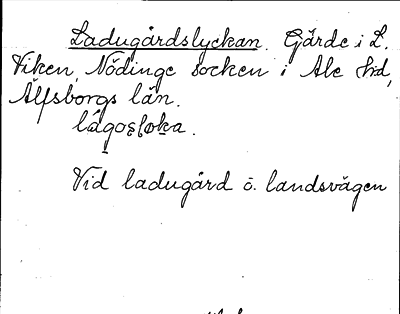 Ladugårdslyckan. Gärde i L.
Viken, Nödinge socken i Ale hd,
Älfsborgs län.
Vid ladugård ö. landsvägen